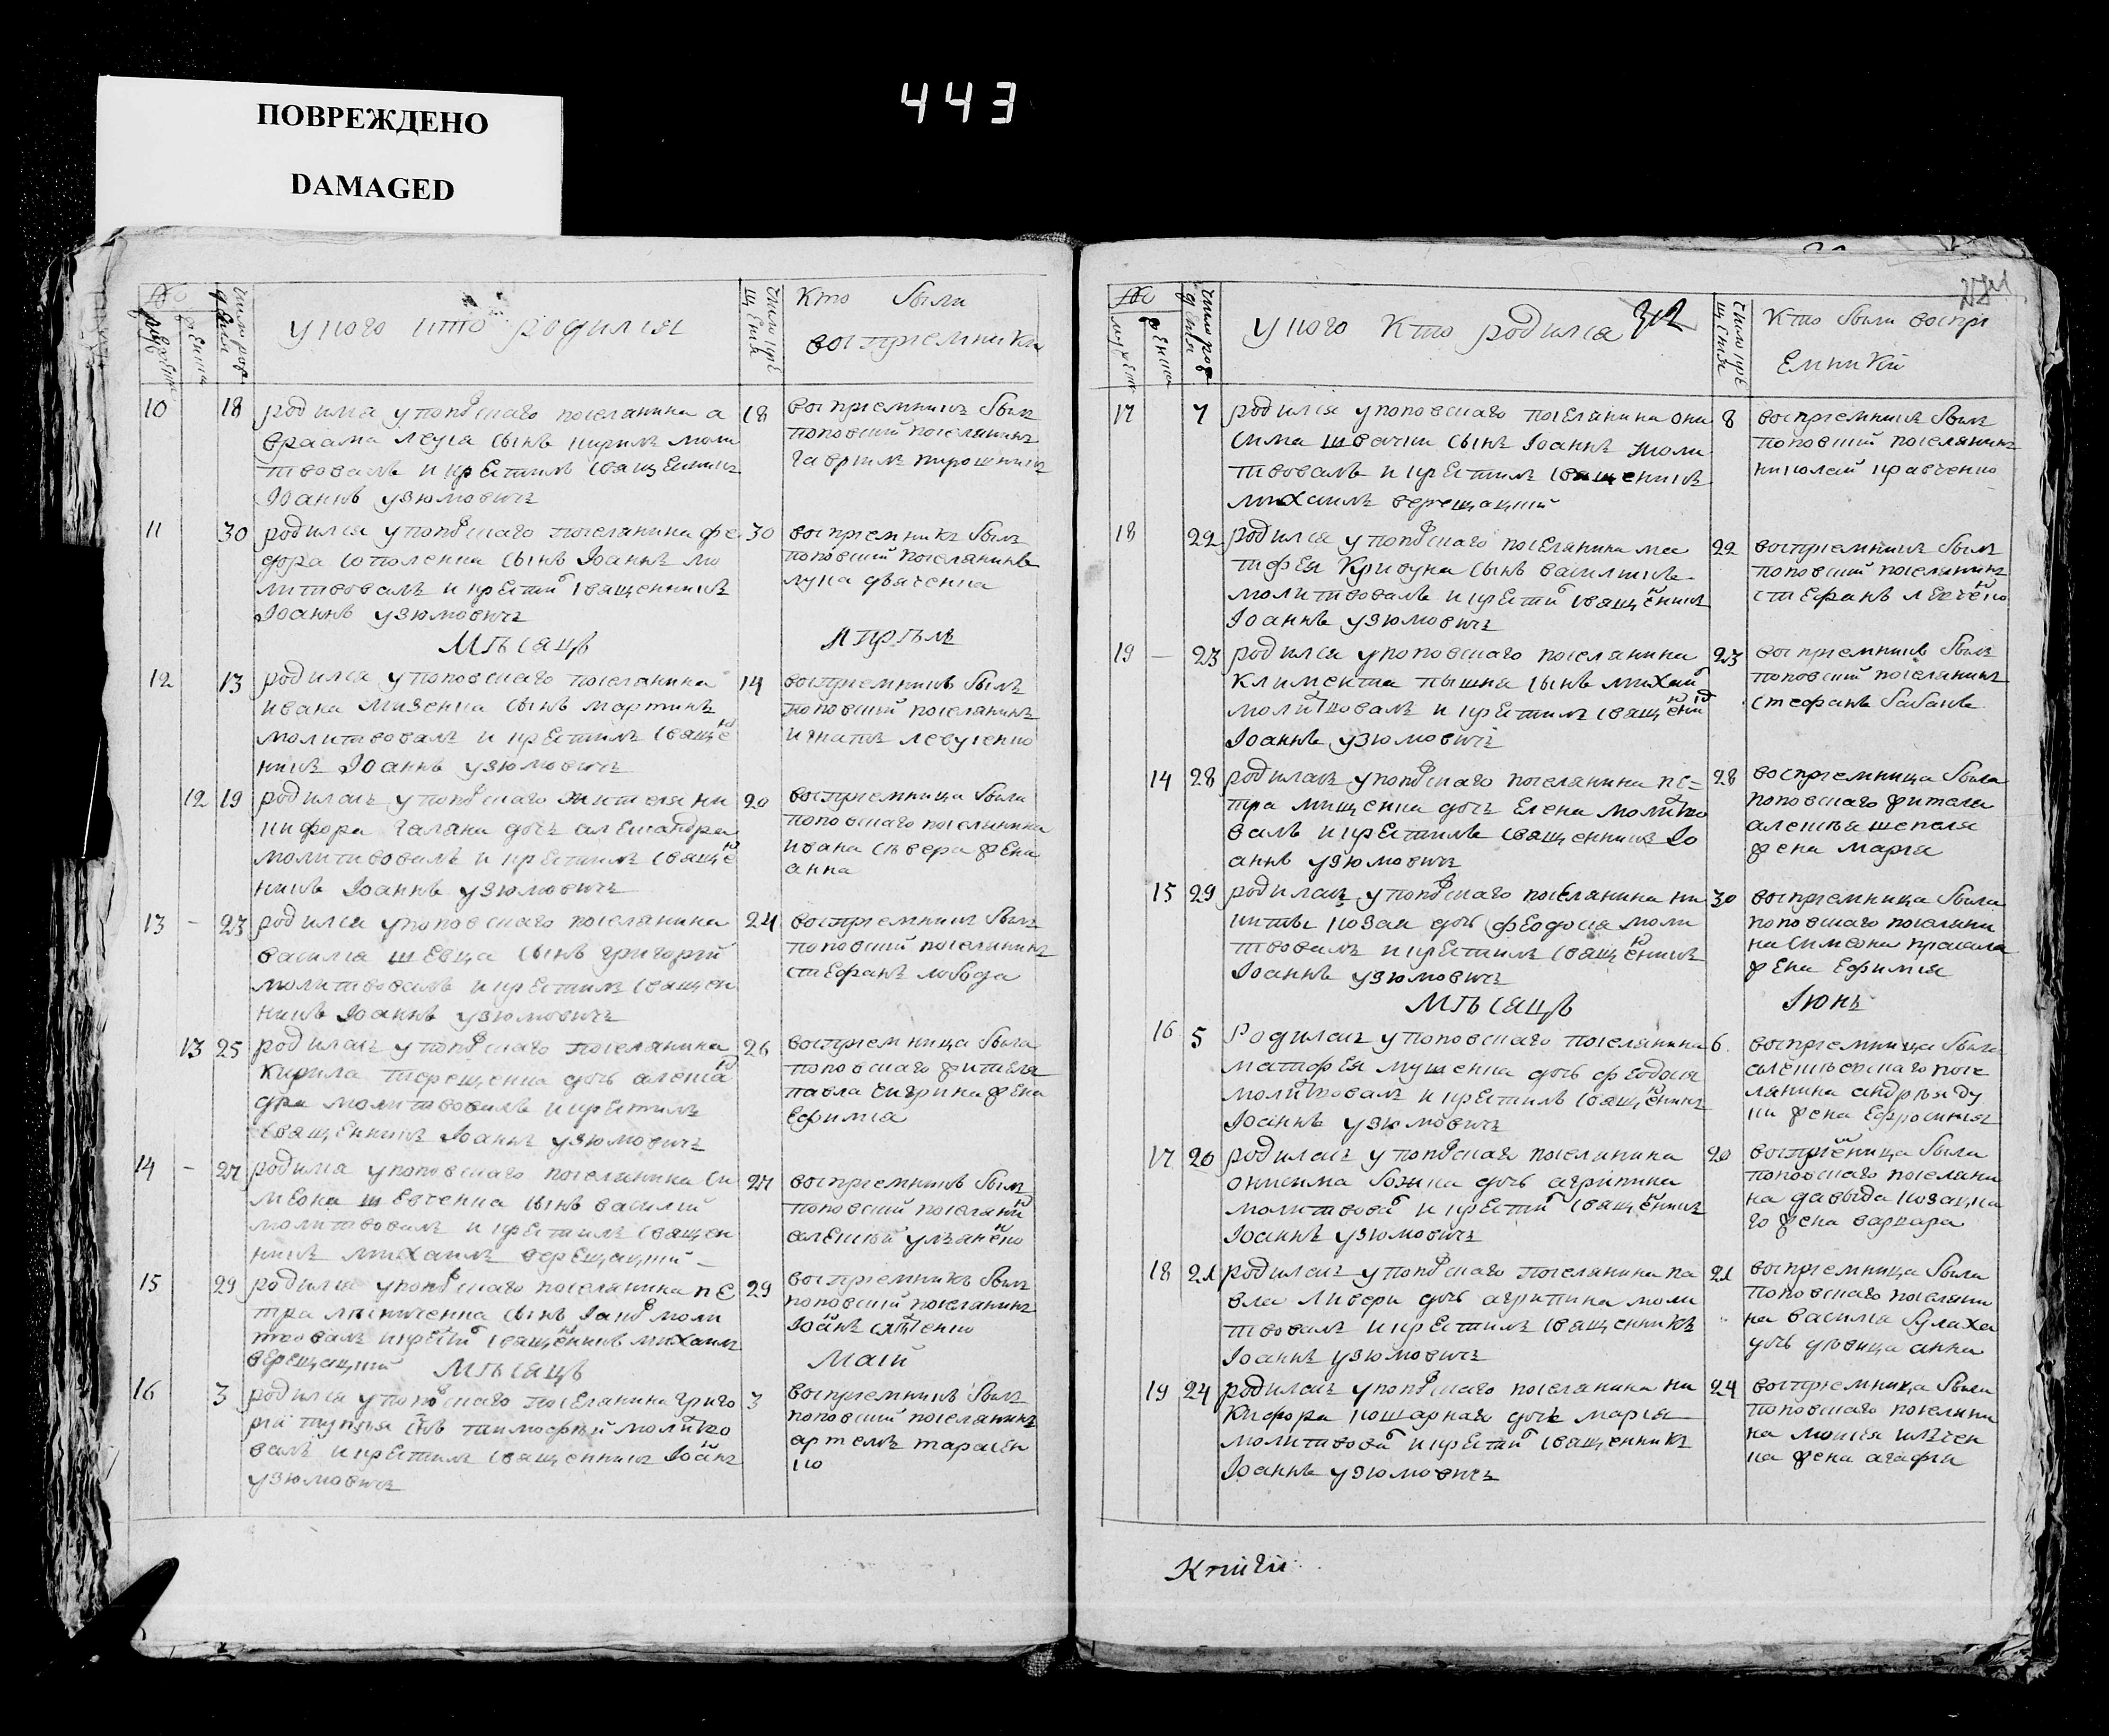 ПОВРЕЖДЕНО
DAMAGED
443
№
мужеска
женска
число рождения
у кого кто родился
число крещения
Кто были
восприемники
10 18 родился у поповскаго поселянина а
враама сынъ кирилъ моли
твовалъ и крестилъ священникъ
Іоаннъ узюмовичъ
18 восприемникъ былъ
поповский поселянинъ
гавриилъ
11 30 родился у поповскаго поселянина фе
дора сополенка сынъ Іоаннъ мо
литвовалъ и крестил священникъ
Іоаннъ узюмовичъ
30 восприемникъ былъ
поповский поселянинъ
лука дяченко
Мѣсяцъ Апрѣль
12 13 родился у поповскаго поселянина
ивана мизенка сынъ мартинъ
молитвовалъ и крестилъ священ
никъ Іоаннъ узюмовичъ
14 восприемникъ былъ
поповский поселянинъ
игнатъ левченко
12 19 родилась у поповскаго жителя ни
кифора галяки дочь александра
молитвовалъ и крестилъ священ
никъ Іоаннъ узюмовичъ
20 восприемница была
поповскаго поселянина
ивана сѣвера жена
анна
13 - 23 родился у поповскаго поселянина
василия шевца сынъ григорий
молитвовалъ и крестилъ священ
никъ Іоаннъ узюмовичъ
24 восприемникъ былъ
поповский поселянинъ
стефанъ лобода
13 25 родилась у поповскаго поселянина
кирила терещенка дочь алексан
дра молитвовалъ и крестилъ
священникъ Іоаннъ узюмовичъ
26 восприемница была
поповскаго жителя
павла жена
Ефимия
14 - 27 родился у поповскаго поселянина си
меона шевченка сынъ василий
молитвовалъ и крестилъ священ
никъ михаилъ верещацкий
27 восприемникъ былъ
поповский поселянин
алексий уляненко
15 29 родился у поповскаго поселянина пе
тра сынъ Іаков моли
твовалъ и крестил священникъ михаилъ
верещацкий
29 восприемникъ былъ
поповский поселянинъ
Іоанъ
Мѣсяцъ Маій
16 3 родился у поповскаго поселянина григо
рия сынъ тимофей молитво
валъ и крестилъ священникъ Іоанъ
узюмовичъ
3 восприемникъ былъ
поповский поселянинъ
артемъ тарасен
ко
№
мужеска
женска
число рождения
у кого Кто родился
число крещения
Кто были воспри
емники
17 7 родился у поповскаго поселянина они
сима швачки сынъ Іоаннъ моли
твовалъ и крестилъ священникъ
михаилъ верещацкий
8 восприемникъ былъ
поповский поселянинъ
николай кравченко
18 22 родился у поповскаго поселянина ма
тфея Кривуна сынъ
молитвовалъ и крестил священникъ
Іоаннъ узюмовичъ
22 восприемникъ былъ
поповский поселянинъ
стефанъ левченко
19 — 23 родился у поповскаго поселянина
климента пышна сынъ михаил
молитвовалъ и крестилъ священник
Іоаннъ узюмовичъ
23 восприемникъ былъ
поповский поселянинъ
стефанъ бабакъ
14 28 родилась у поповскаго поселянина пе-
тра мищенка дочь Елена молитво
валъ и крестилъ священникъ Іо
аннъ узюмовичъ
28 восприемница была
поповскаго жителя
алексѣя шепеля
жена мария
15 29 родилась у поповскаго поселянина ни
киты козак дочь феодосия моли
твовалъ и крестилъ священникъ
Іоаннъ узюмовичъ
30 восприемница была
поповскаго поселяни
на симеона
жена Ефимия
Мѣсяцъ Іюнь
16 5 Родилась у поповскаго поселянина
матфея мушенка дочь феодосия
молитвовалъ и крестилъ священникъ
Іоаннъ узюмовичъ
6 восприемница была
посе
лянина андрѣя ду
ки жена Ефросиния
17 20 родилась у поповскаго поселянина
онисима божка дочь агрипина
молитвовал и крестил священникъ
Іоаннъ узюмовичъ
20 восприемница была
поповскаго поселяни
на давыда козацка
го жена варвара
18 21 родилась у поповскаго поселянина па
вла ливери дочь агрипина моли
твовалъ и крестилъ священникъ
Іоаннъ узюмовичъ
21 восприемница была
поповскаго поселяни
на василия булаха
дочь дѣвица анна
19 24 родилась у поповскаго поселянина ни
кифора кошарнаго дочь мария
молитвовал и крестил священникъ
Іоаннъ узюмовичъ
24 восприемница была
поповскаго поселяни
на моисея илчен
ка жена агафия
Книги